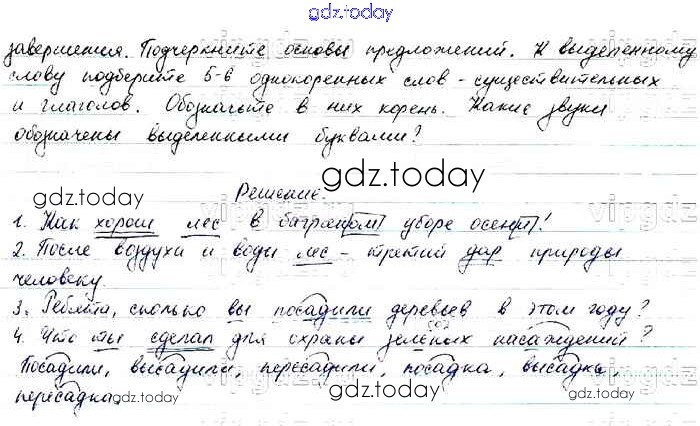 gdz.today
завершения. Подчеркните основы предложений. К выделенному
слову подберите 5-6 однокоренных слов - существительных
и глаголов. Обозначьте в них корень. Какие звуки
обозначены выделенными буквами?
gdz.today
gdz.today
Решение.
1. Как хорош лес в багряном уборе осени!
2. После воздуха и воды лес - третий дар природы
человеку.
3. Ребята, сколько вы посадили деревьев в этом году?
4. Что ты сделал для охраны зелёных насаждений?
Посадили, высадили, пересадили, посадка, высадка,
пересадка.
gdz.today
gdz.today
gdz.today